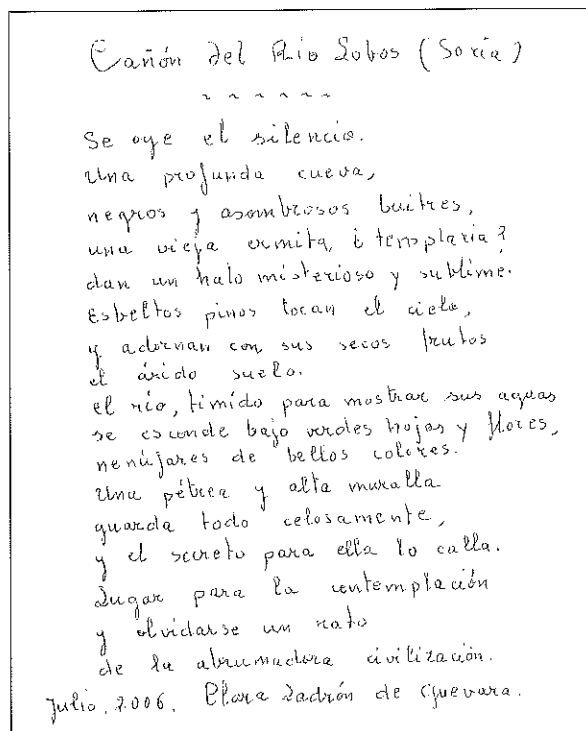 Cañón del Rio Lobos (Soria)
~ ~ ~ ~ ~ ~
Se oye el silencio.
Una profunda cueva,
negros y asombrosos buitres,
una vieja ermita, ¿templaria?
dan un halo misterioso y sublime.
Esbeltos pinos tocan el cielo,
y adornan con sus secos frutos
el árido suelo.
el río, tímido para mostrar sus aguas
se esconde bajo verdes hojas y flores,
nenúfares de bellos colores.
Una pétrea y alta muralla
guarda todo celosamente,
y el secreto para ella lo calla.
Lugar para la contemplación
y olvidarse un rato
de la abrumadora civilización.
Julio, 2006. Clara Ladrón de Guevara.